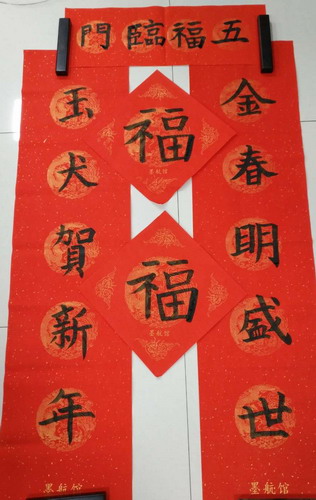 五福臨門
金春明盛世
墨航馆
福
墨航馆
福
墨航馆
玉犬賀新年
墨航馆